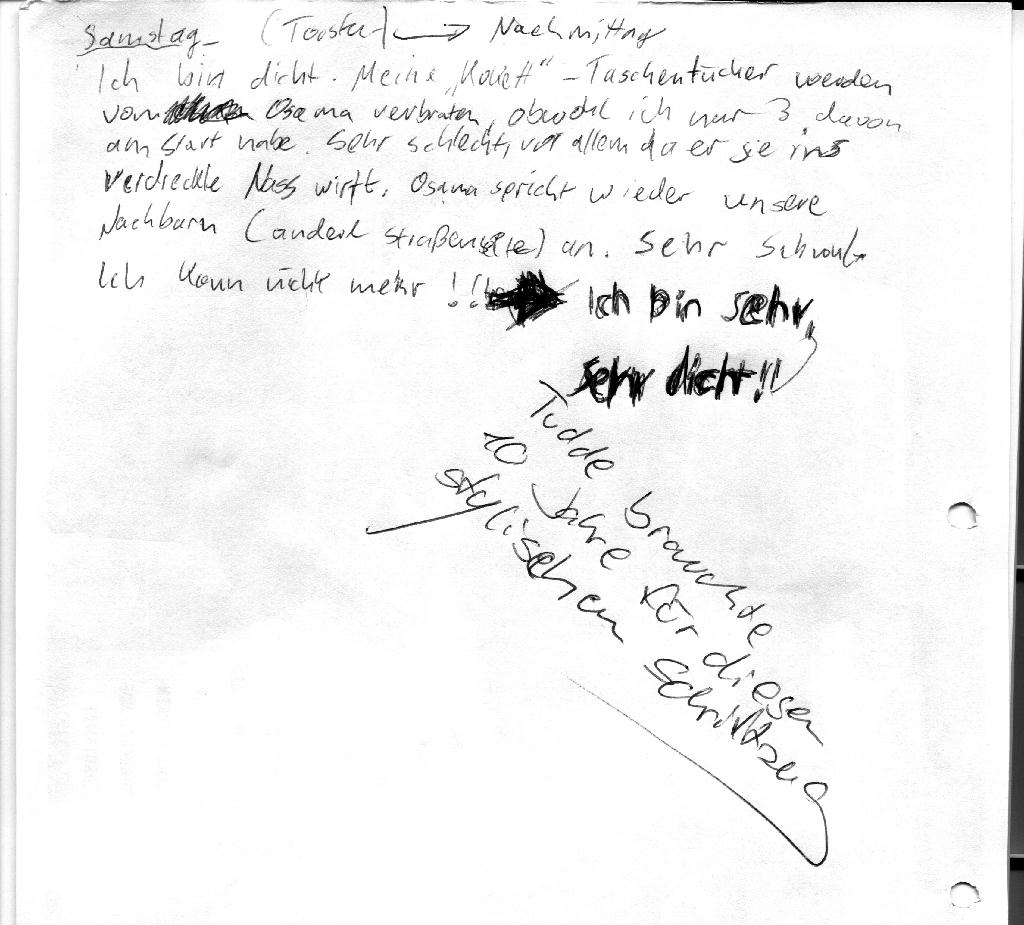 Samstag (Torsten) → Nachmittag
Ich bin dicht. Meine „Kolett“-Taschentücher werden
von Osama verbraten, obwohl ich nur 3 davon
am Start habe. Sehr schlecht, vor allem da er sie ins
verdreckte Nass wirft. Osama spricht wieder unsere
Nachbarn (andere Straßenseite) an. Sehr
Ich kann nicht mehr!!
Ich bin sehr,
sehr dicht!!
Tudde brauchte
10 Jahre für diesen
stylischen Schriftzug